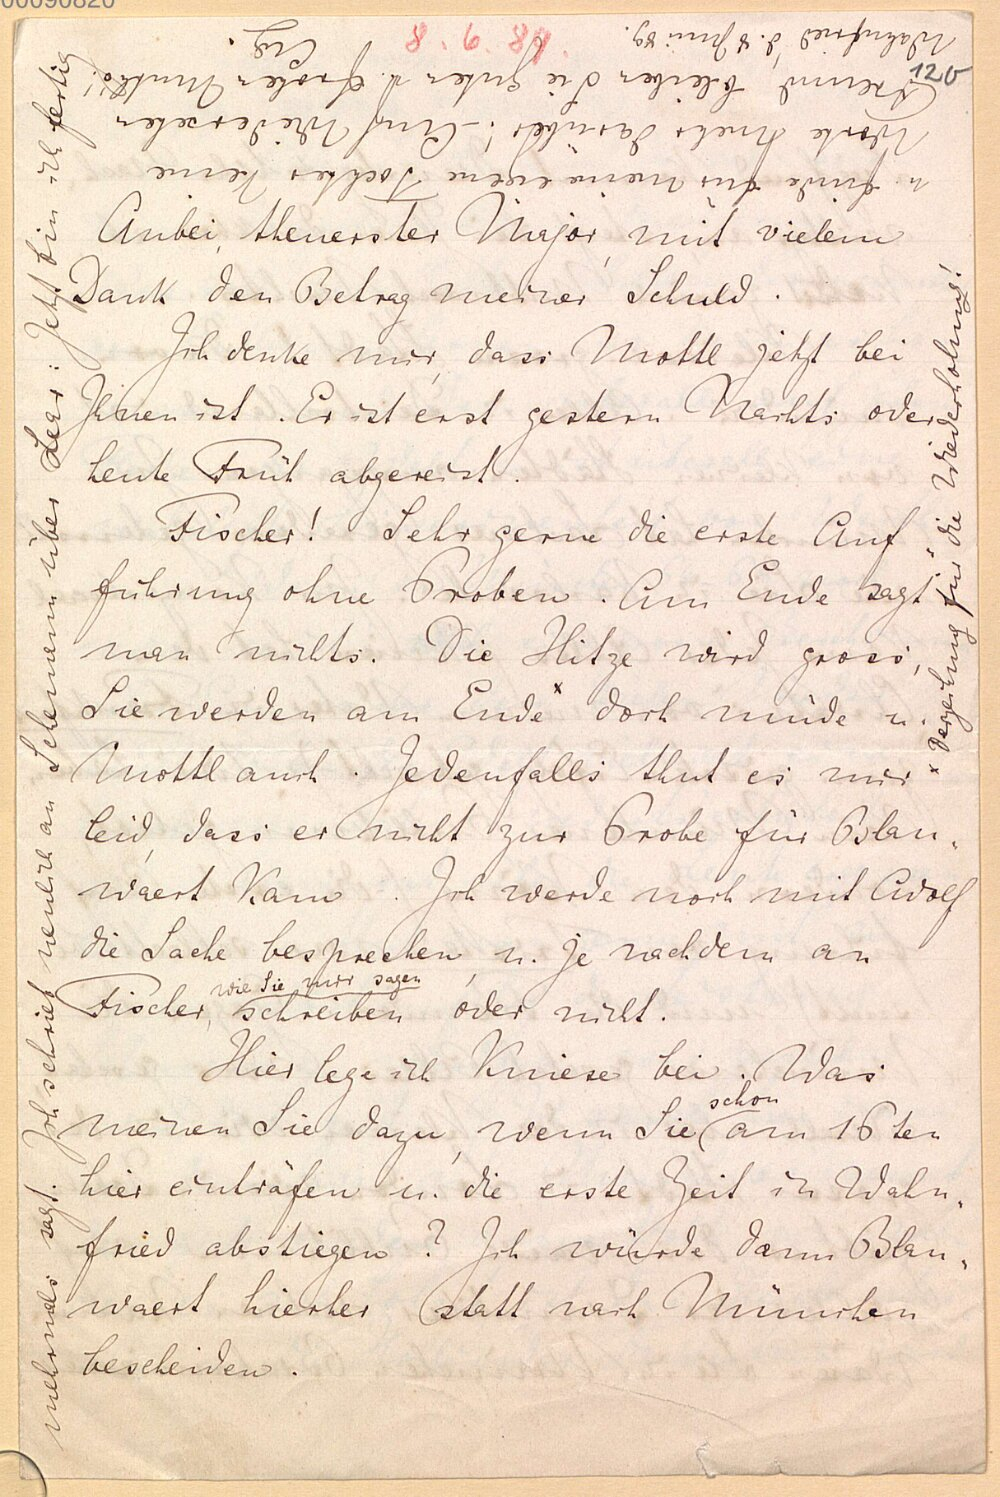 00090820
120
Anbei, theuerster Major, mit vielem
Dank den Betrag meiner Schuld.
Ich denke mir, dass Mottl jetzt bei
Ihnen ist. Er ist erst gestern Nachts oder
heute Früh abgereist.
Fischer! Sehr gerne die erste Auf
führung ohne Proben. Am Ende sagt
man nichts. Die Hitze wird gross,
Sie werden am Ende x doch müde u.
Mottl auch. Jedenfalls thut es mir
leid, dass er nicht zur Probe für Blau-
waert kam. Ich werde noch mit Adolf
die Sache besprechen, u. je nachdem an
Fischer, wie Sie mir sagen
schreiben oder nicht.
Hier lege ich Kniese bei. Was
meinen Sie dazu, wenn Sie schon am 16ten
hier einträfen u. die erste Zeit in Wahn-
fried abstiegen? Ich würde dann Blau-
waert hierher (statt nach München
bescheiden.
x Verzeihung für die Wiederholung!
Ich schrieb neulich an Schemann über Lear: Jetzt bin ich fertig
mehrmals sagt.
u. finde für meine eigene Tochter keine
Worte mehr darüber! – Auf Wiedersehen
Freund, bleiben Sie guter u. grosser Muths!
Wahnfried, d. 8 Juni 89.
88.9.8